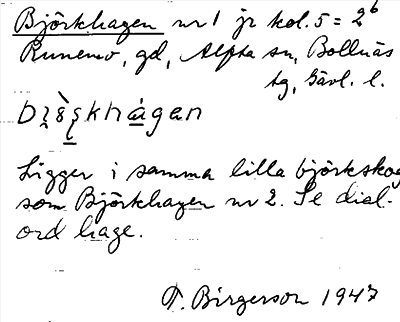 Björkhagen nr 1 jr kol. 5 = 2⁶
Runemo, gd, Alfta sn, Bollnäs
tg, Gävl. l.
Ligger i samma lilla björkskog
som Björkhagen nr 2. Se dial.
ord hage.
T. Birgerson 1947